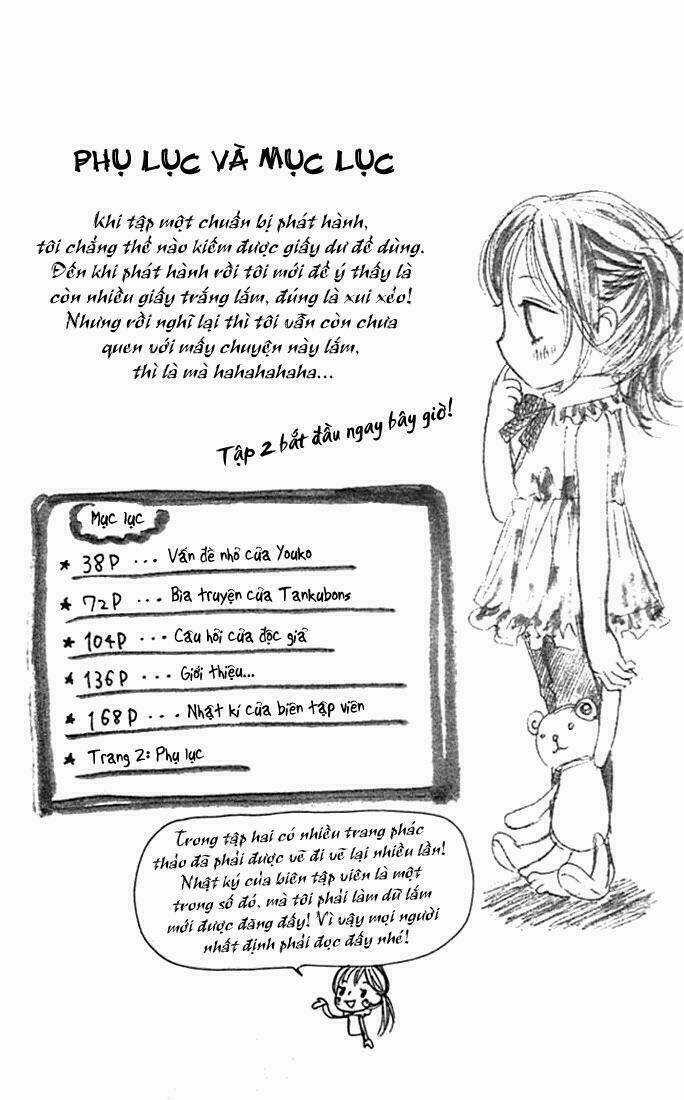 PHỤ LỤC VÀ MỤC LỤC
Khi tập một chuẩn bị phát hành,
tôi chẳng thể nào kiếm được giấy dư để dùng.
Đến khi phát hành rồi tôi mới để ý thấy là
còn nhiều giấy trắng lắm, đúng là xui xẻo!
Nhưng rồi nghĩ lại thì tôi vẫn còn chưa
quen với mấy chuyện này lắm,
thì là mà hahahahaha...
Tập 2 bắt đầu ngay bây giờ!
Mục lục
★ 38P ... Vấn đề nhỏ của Youko
★ 72P ... Bìa truyện của Tankubons
★ 104P ... Câu hỏi của độc giả
★ 136P ... Giới thiệu...
★ 168P ... Nhật kí của biên tập viên
★ Trang 2: Phụ lục
Trong tập hai có nhiều trang phác
thảo đã phải được vẽ đi vẽ lại nhiều lần!
Nhật ký của biên tập viên là một
trong số đó, mà tôi phải làm dữ lắm
mới được đăng đấy! Vì vậy mọi người
nhất định phải đọc đấy nhé!